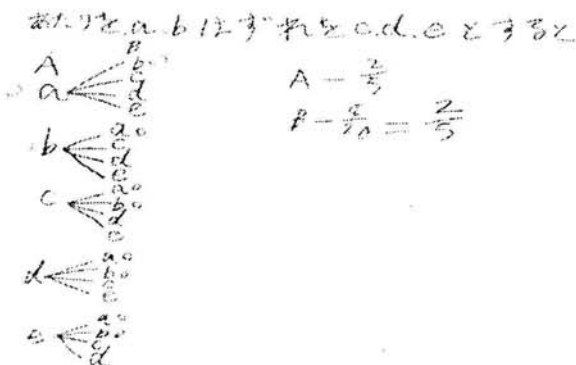 あたりをa.bはずれをc.d.eとすると
A B
a b○
c
d
e
b a○
c
d
e
c a○
b○
d
e
d a○
b○
c
e
e a○
b○
c
d
A - 2/5
B - 8/20 = 2/5